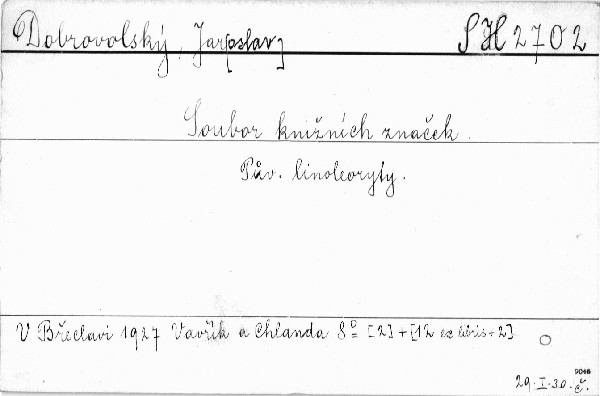 Dobrovolský, Jar[oslav] SH 2702
Soubor knižních značek.
Pův. linoleoryty.
V Břeclavi 1927 Vavřík a Chlanda 8° [2]+[12 ex libris-2]
9046
29.I.30. č.